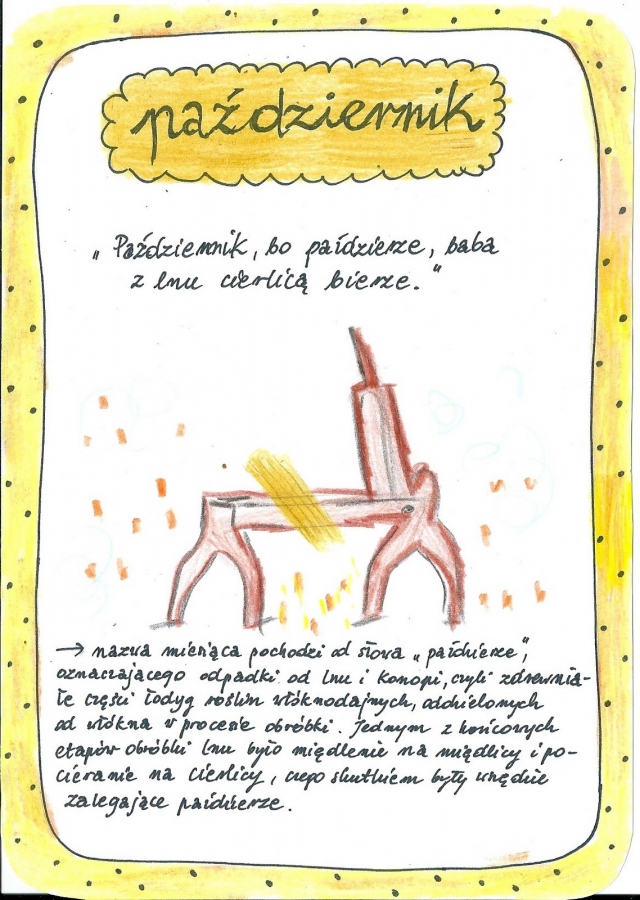 październik
„Październik, bo paździerze, baba
z lnu cierlicą bierze."
→ nazwa miesiąca pochodzi od słowa „paździerze",
oznaczającego odpadki od lnu i konopi, czyli zdrewnia-
łe części łodyg roślin włóknodajnych, oddzielonych
od włókna w procesie obróbki. Jednym z końcowych
etapów obróbki lnu było międlenie na międlicy i po-
cieranie na cierlicy, czego skutkiem były wszędzie
zalegające paździerze.